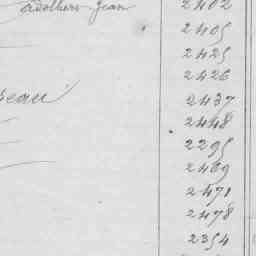 Jean 2402
2405
2425
2426
eau 2437
2448
2295
2469
2471
2478
2354